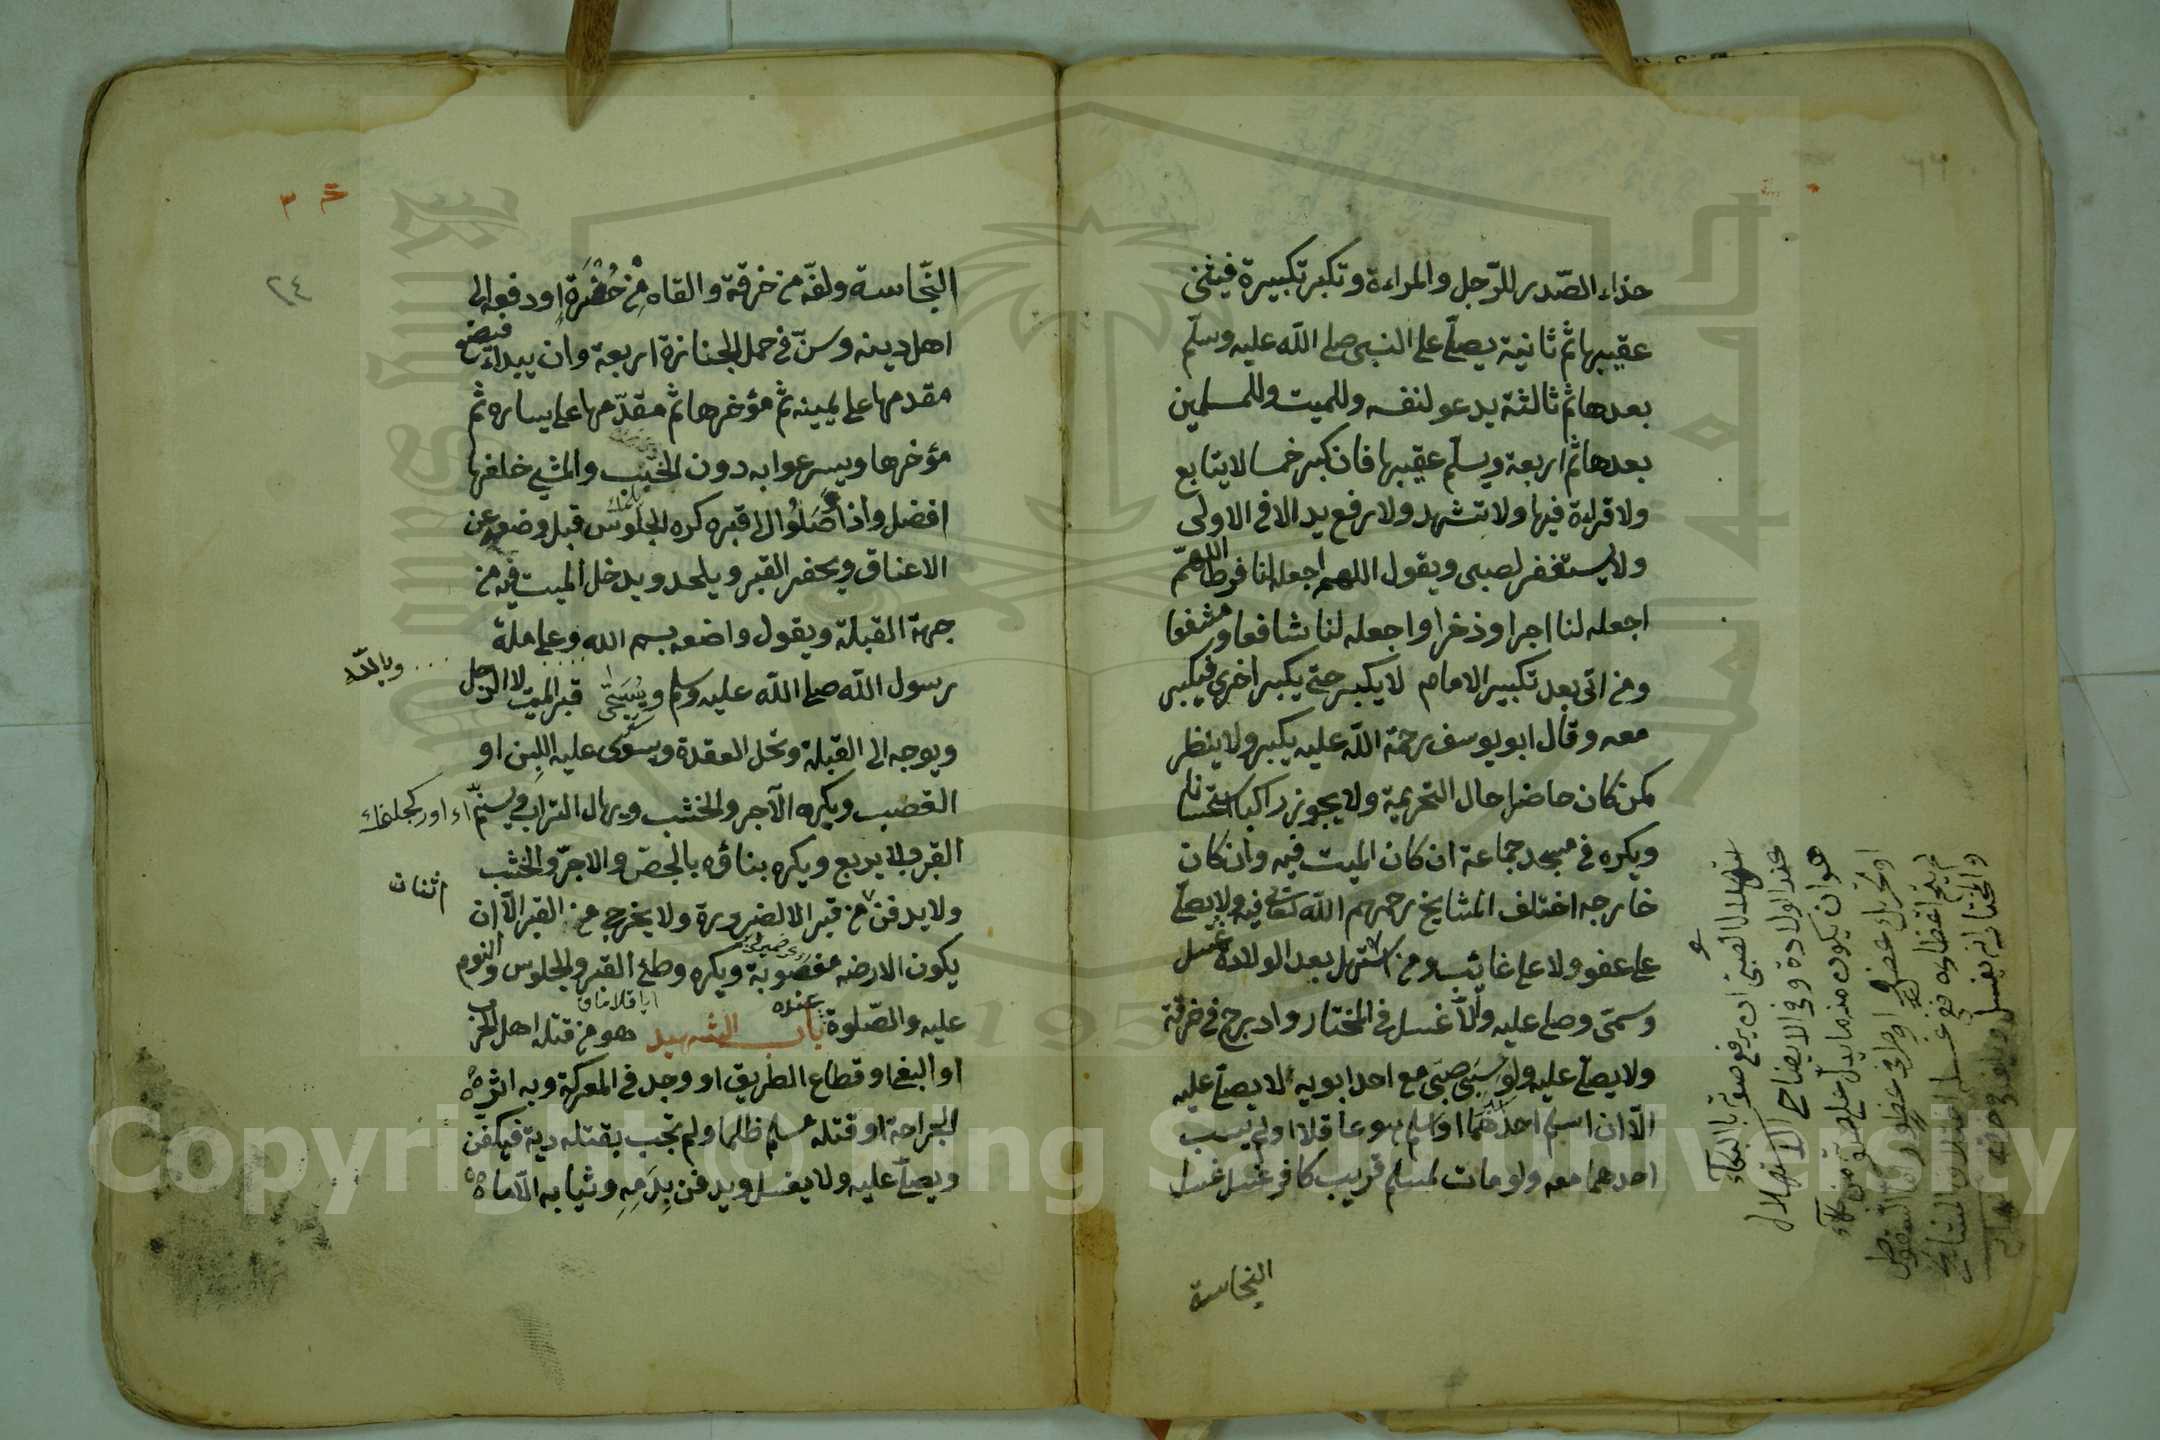 حذاء الصّدر للرّجل والمراءة وتكبر تكبيرة فيثنى
عقيبها ثم ثانية يصلّي على النبي صلى الله عليه وسلّم
بعدها ثم ثالثة يدعو لنفسه وللميت وللمسلمين
بعدها ثم اربعة ويسلّم عقيبها فان كبر خمسا لا يتابع
ولا قراءة فيها ولا تشهد ولا رفع يد الا في الاولى
ولا يستغفر لصبي ويقول اللهم اجعله لنا فرطا اللهمّ
اجعله لنا اجرا وذخرا واجعله لنا شافعا ومشفعا
ومن اتى بعد تكبير الامام لا يكبر حتى يكبر اخرى فيكبر
معه وقال ابو يوسف رحمة الله عليه يكبر ولا ينتظر
كمن كان حاضرا حال التحريمة ولا يجوز راكبا استحسانا
ويكره في مسجد جماعة ان كان الميت فيه وان كان
خارجه اختلف المشايخ رحمهم الله تعالى فيه ولا يصلّي
على عضو ولا على غائب ومن استهل بعد الولادة غسل
وسمّى وصلى عليه والّا غسل في المختار وادرج في خرقة
ولا يصلّى عليه ولو سَبى صبي مع احد ابويه لا يصلّى عليه
الّا ان اسلم احدهما او اسلم هو عاقلا او لم يسب
احدهما معه ولو مات لمسلم قريب كافر غسل غسل
النجاسة
عند الولادة وفي الايضاح الاستهلال
هو ان يكون منه ما يدل على
النّجاسة ولفّه من خرقة والقاه من حُفْرَةٍ او دفع الى
اهل دينه وسنّ في حمل الجنازة اربعة وان يبداء فيضع
مقدمها على يمينه ثم مؤخرها ثم مقدّمها على يساره ثم
مؤخرها ويسرعوا به دون الخبب والمشي خلفها
افضل واذا وصَلُوا الى قبره كره الجلوس قبل وضعه عن
الاعناق ويحفر القبر ويلحد ويدخل الميت فيه من
جهة القبلة ويقول واضعه بسم الله وعلى ملة
وبالله
رسول الله صلى الله عليه وسلم ويُسَجّى قبر الميت لا الرجل
ويوجه الى القبلة وتحل العقدة ويسوّى عليه اللبن او
القصب ويكره الآجر والخشب ويهال التراب ويسنّم
القبر ولا يربع ويكره بناؤه بالجصّ والاجرّ والخشب
اثنان
ولا يدفن من قبر الا لضرورة ولا يخرج من القبر الّا ان
يكون الارضه مغصوبة ويكره وطئ القبر والجلوس والنوم
عليه والصّلوة عنده باب الشهيد هو من قتله اهل الحرب
او البغي او قطاع الطريق او وجد في المعركة وبه اثره
الجراحة او قتله مسلم ظالما ولم تجب بقتله دية فيكفّن
ويصلّى عليه ولا يغسل ويدفن بِدَمِهِ وثيابه الّا ما
٢٤
Copyright © King Saud University
جامعة الملك سعود
1957